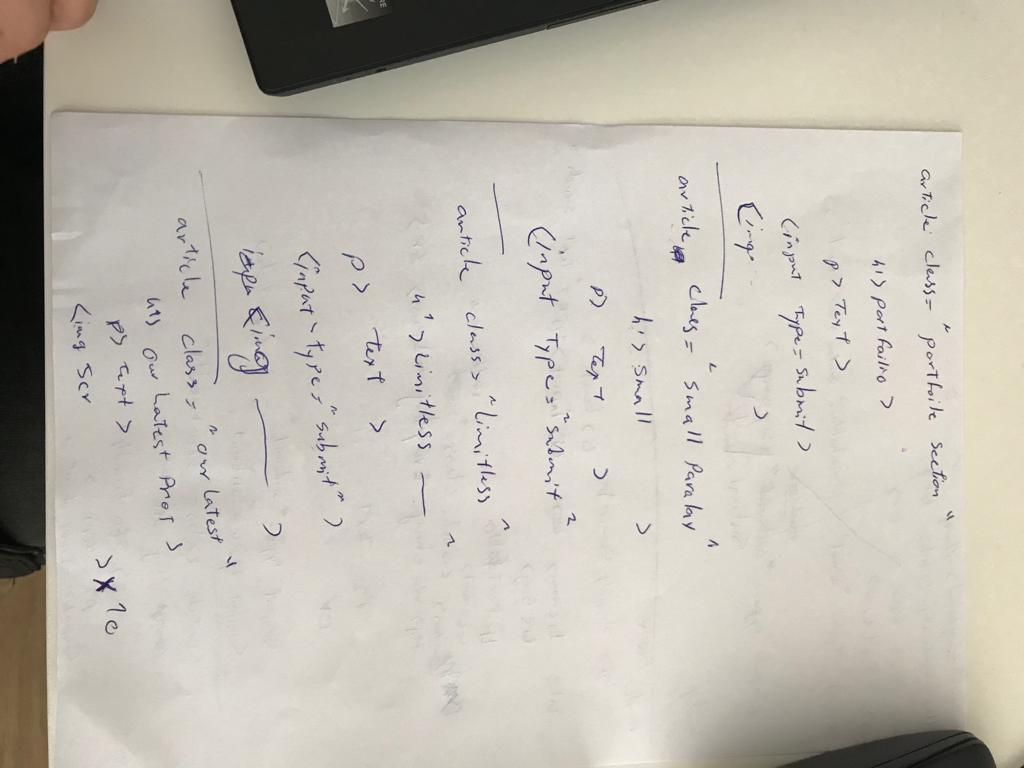 article class= " portfoile section "
h1> portfoilno >
p> Text >
<input Type=submit>
<img >
article class= " small Paralax "
h1> small >
p> Text >
<input Type="submit"
article class> "limitless "
h1>Limitless "
p> Text >
<input type="submit">
<img >
article class= "our latest"
h1> our Latest Proj >
p> Text >
<img scr > x 10